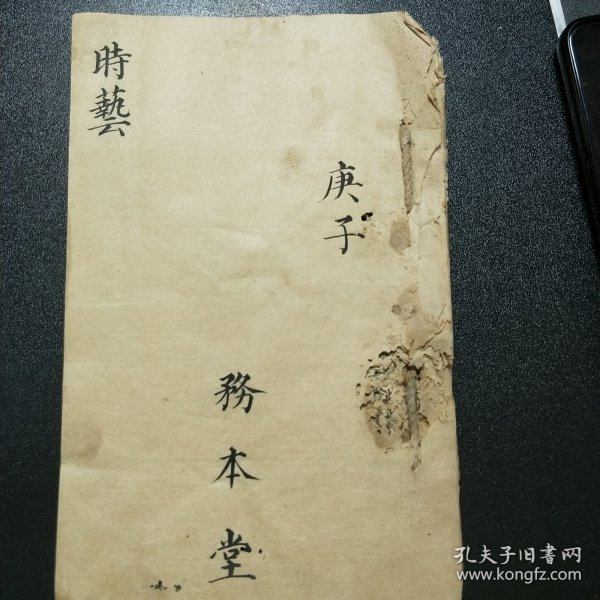 庚子
時藝
務本堂
孔夫子旧書网
www.kongfz.com